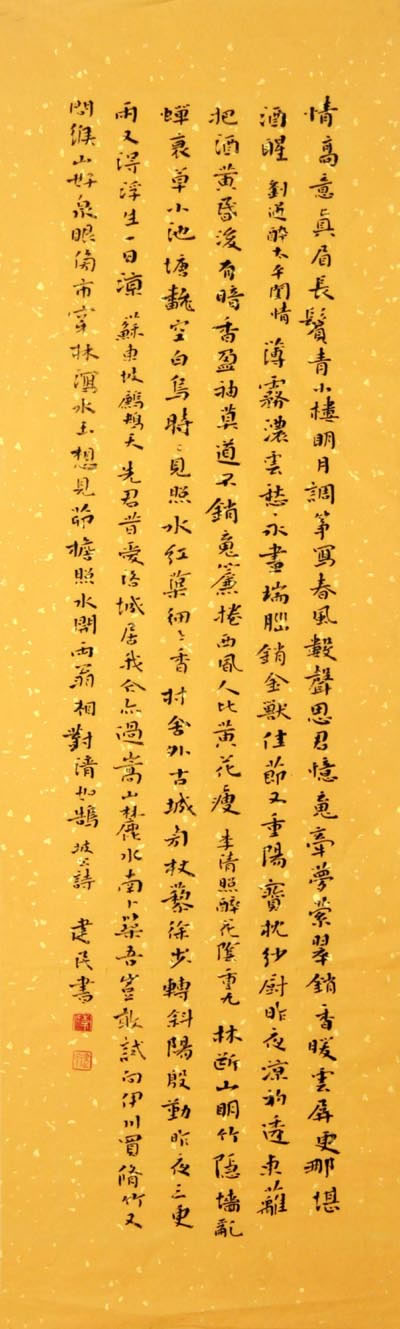 情高意真眉長鬢青小樓明月調箏寫春風數聲思君憶君䰟牽夢縈翠銷香暖雲屏更那堪
酒醒 劉過醉太平閨情 薄霧濃雲愁永晝瑞腦銷金獸佳節又重陽寶枕紗厨昨夜涼初透東籬
把酒黃昏後有暗香盈袖莫道不銷䰟簾捲西風人比黃花瘦 李清照醉花陰重九 林斷山明竹隱墻亂
蟬衰草小池塘翻空白鳥時時見照水紅蕖細細香村舍外古城旁杖藜徐步轉斜陽殷勤昨夜三更
雨又得浮生一日涼 蘇東坡鷓鴣天 先君昔愛洛城居我今亦過嵩山麓水南卜築吾豈敢試向伊川買脩竹又
聞緱山好泉眼傍市穿林瀉冰玉想見茆檐照水開兩翁相對清如鵠 坡公詩 建民書